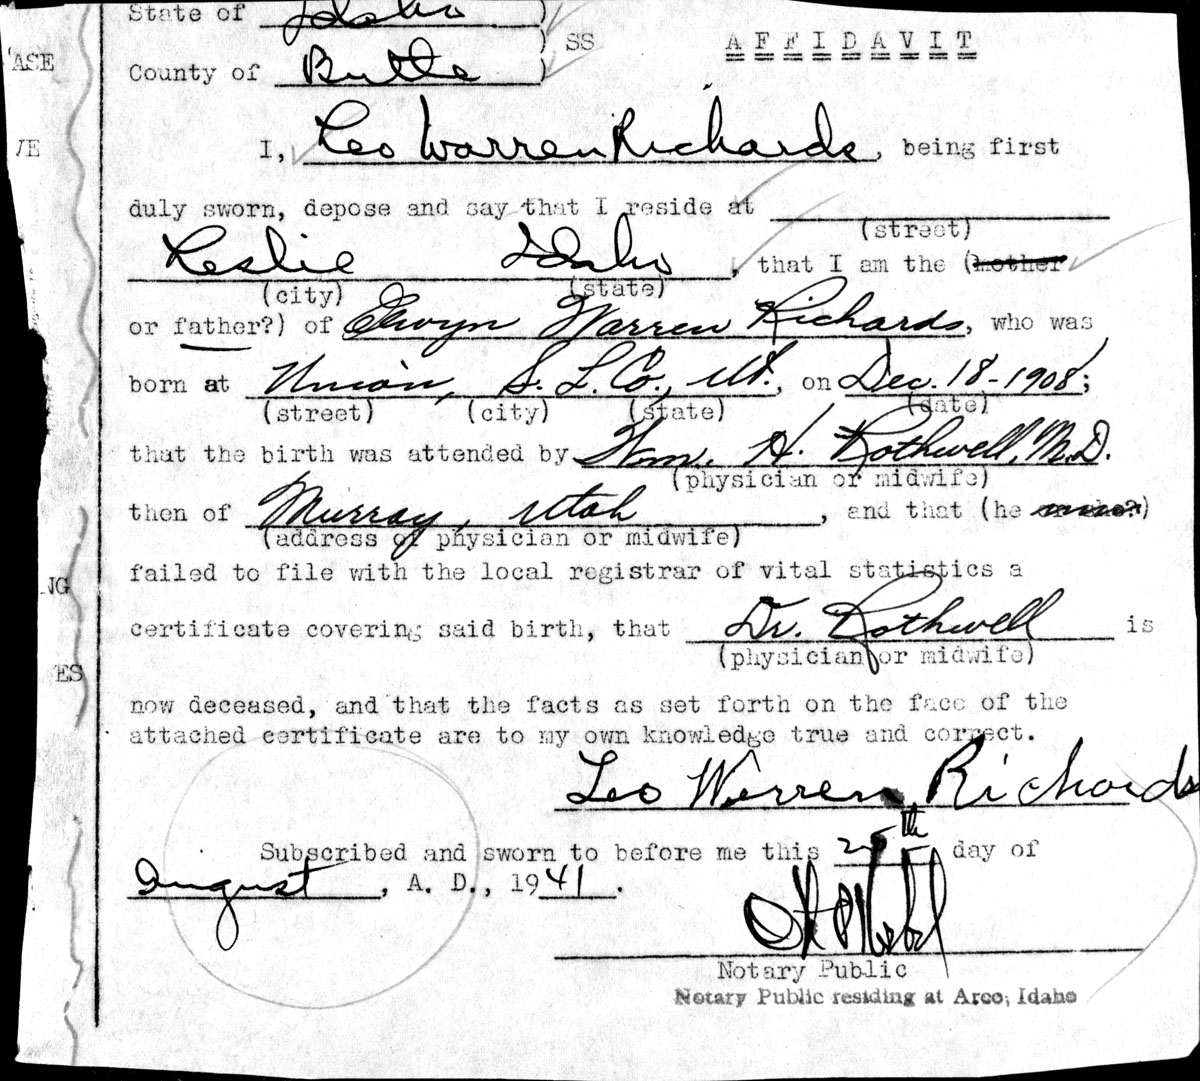 State of Idaho )
) SS A F F I D A V I T
'ASE
County of Butte )
/E
I, Leo Warren Richards, being first
duly sworn, depose and say that I reside at
(street)
Leslie Idaho, that I am the (mother
(city) (state)
or father?) of Elwyn Warren Richards, who was
born at Union, S. L. Co., Ut., on Dec. 18-1908;
(street) (city) (state) (date)
that the birth was attended by Wm. H. Rothwell, M.D.
(physician or midwife)
then of Murray, Utah, and that (he )
(address of physician or midwife)
NG
failed to file with the local registrar of vital statistics a
certificate covering said birth, that Dr. Rothwell is
(physician or midwife)
ES
now deceased, and that the facts as set forth on the face of the
attached certificate are to my own knowledge true and correct.
Leo Warren Richards
Subscribed and sworn to before me this 25th day of
August, A. D., 1941.
Notary Public
Notary Public residing at Arco, Idaho